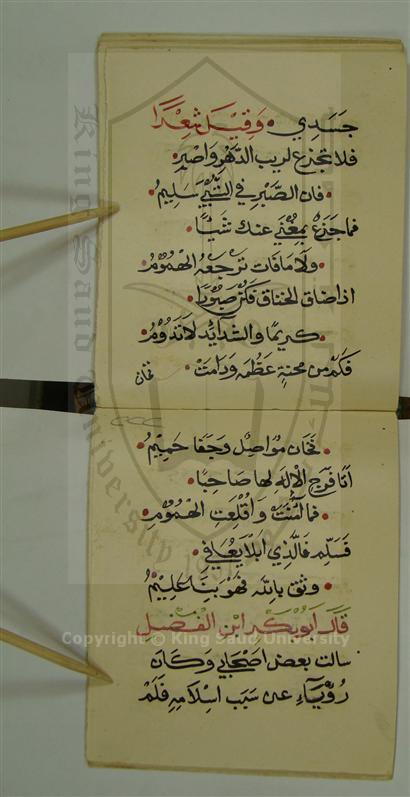 جَسَدِي • وَقِيْلَ شِعْرًا
فلا تجزع لريب الدَّهْرِ وَاصْبِر
• فان الصَّبْرَ في سَلِيمُ •
فما جَزَعٌ بِمُغْنِي عنك شَيْئًا •
• ولا مافات ترجعُهُ الهُمُومُ •
اذا ضاق الخناق فكن صَبُورًا •
• كريمًا والشدايدُ لا تَدُوْمُ •
فَكَمْ من محنةٍ عظُمَت ودَامَتْ •
فخان
• فَخَان مُوَاصِلٌ وَجَفَا حَمِيْمُ •
اتا فَرَج الْاِلَهِ لها صَبَاحًا •
• وَاَقْلَعَتِ الهُمُوْمُ •
فَسَلِّم فَالَّذِي اَبْلَا يُعَافِي •
• وثق بالله فَهُوَ بِنَا عَلِيْمُ •
قَالَ اَبُوبَكْرِ ابْنِ الْفَضْل
سالت بعض اصْحَابِي وَكَان
عن سَبَب اسْلامِهِ فَلَمْ
King Saud University
Copyright © King Saud University